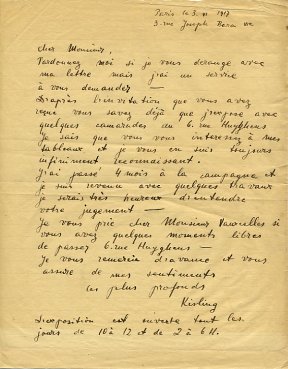 Paris le 3. XI 1917
3. rue Joseph Bara VIe
Cher Monsieur,
Pardonnez moi si je vous derange avec
ma lettre mais j'ai un service
à vous demander —
D'après l'invitation que vous avez
reçue vous savez déjà que j'expose avec
quelques camarades au 6. rue Huyghens
Je sais que vous vous interessez à mes
tableaux et je vous en suis toujours
infiniment reconnaissant.
J'ai passé 4 mois à la campagne et
je suis revenu avec quelques travaux
je serais très heureux d'entendre
votre jugement —
Je vous prie cher Monsieur si
vous avez quelques moments libres
de passer 6. rue Huyghens —
Je vous remercie d'avance et vous
assure de mes sentiments
les plus profonds
Kisling
L'exposition est ouverte tout les
jours de 10 à 12 et de 2 à 6 H.